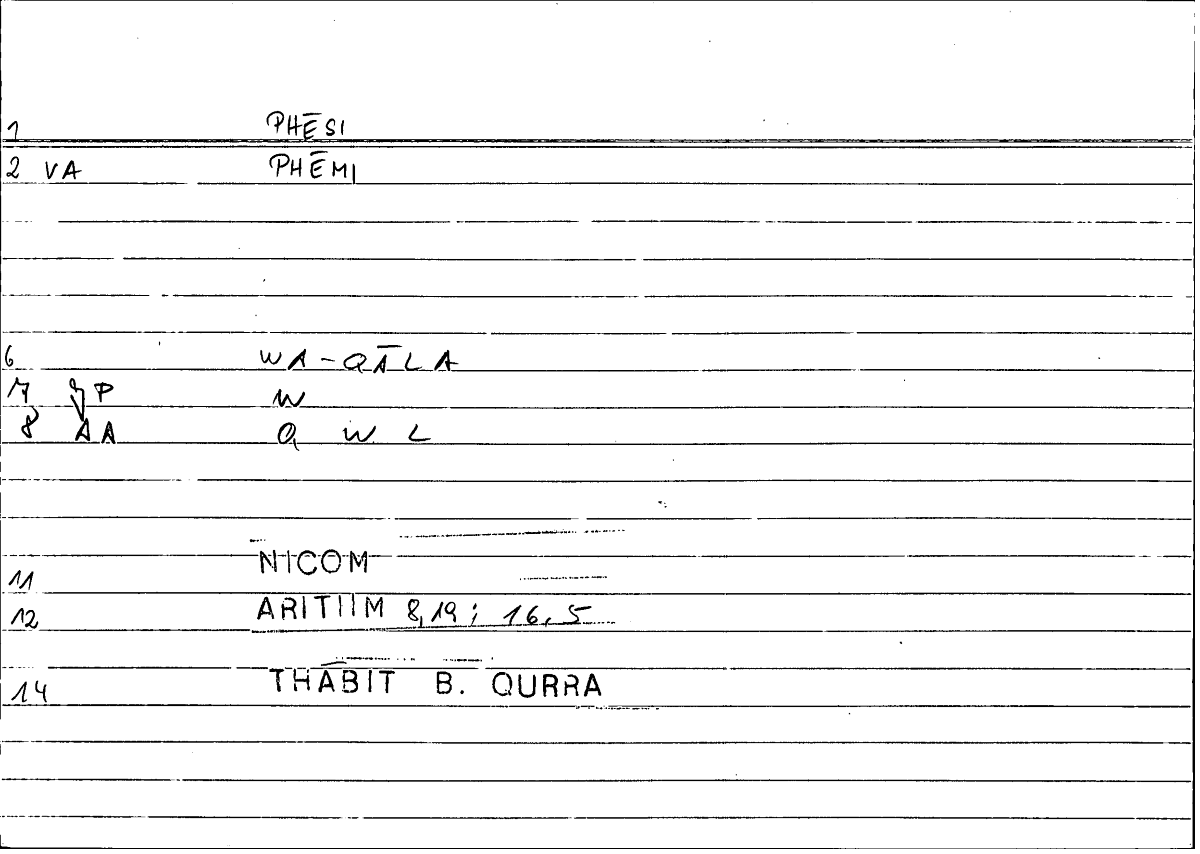 1 PHĒSI
2 VA PHĒMI
6 WA-QĀLA
7 P W
8 AA Q W L
11 NICOM
12 ARITIIM 8,19; 16,5
14 THĀBIT B. QURRA